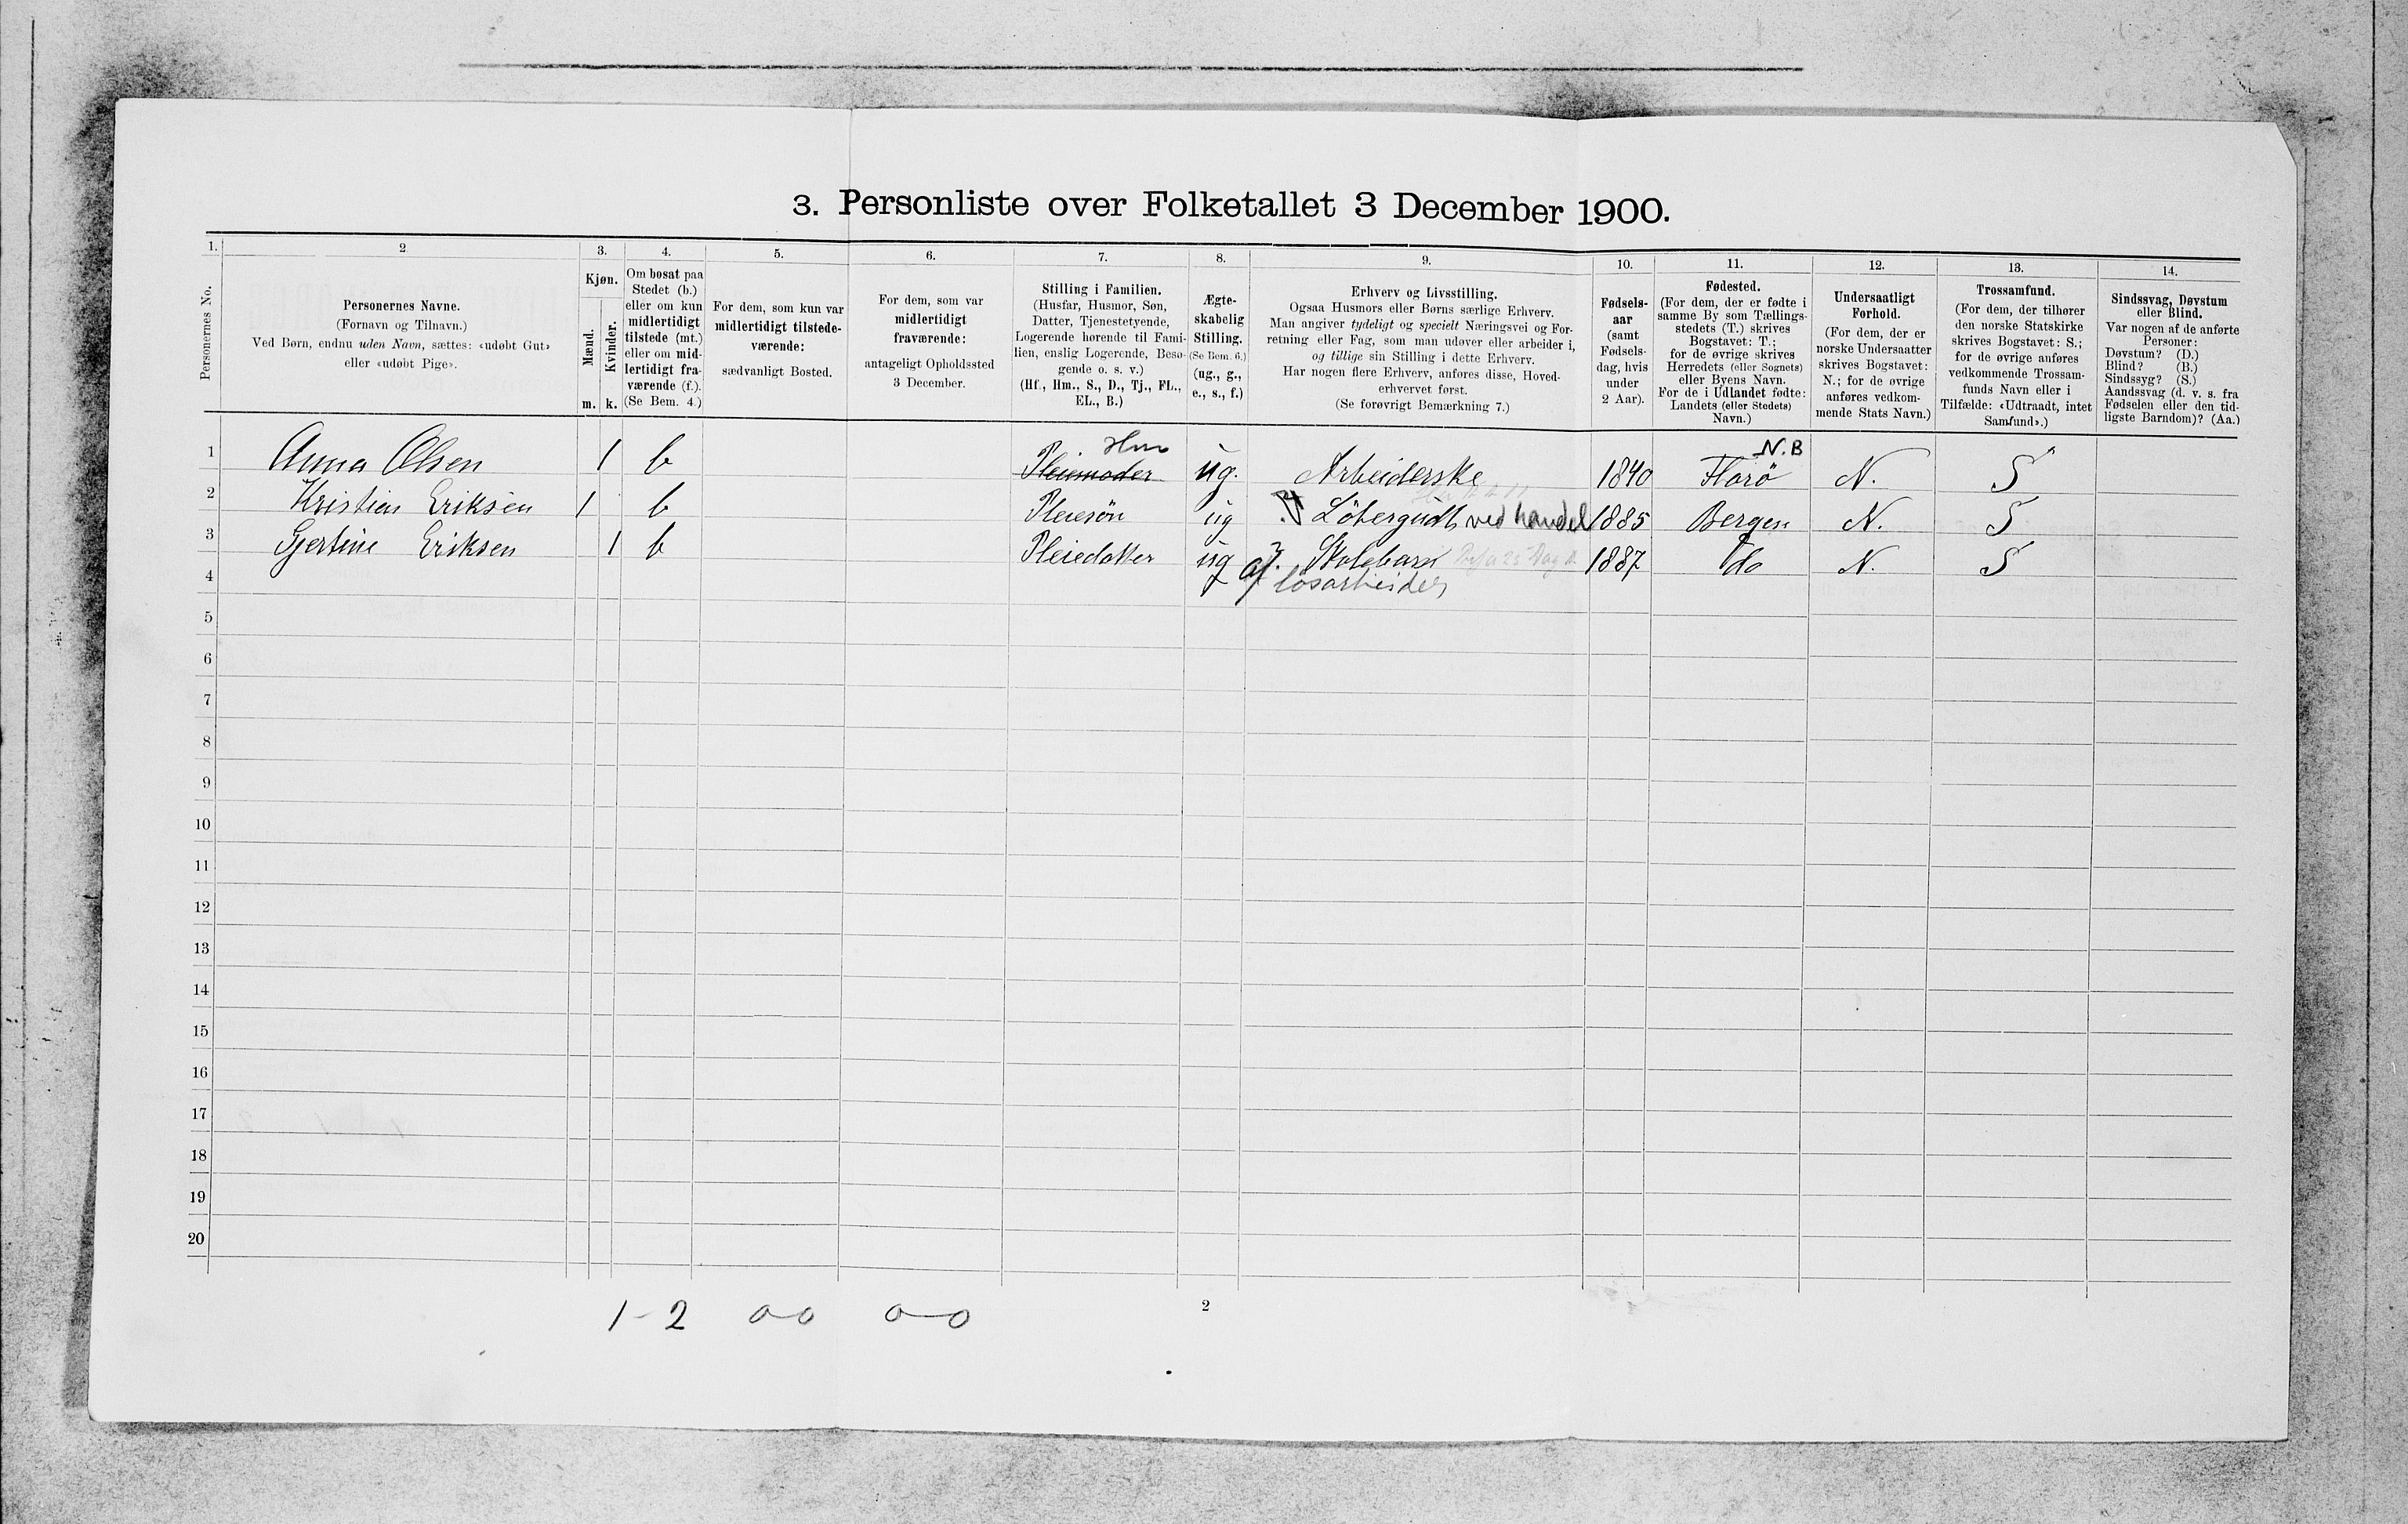 3. Personliste over Folketallet 3 December 1900.
1. 2. 3. 4. 5. 6. 7. 8. 9. 10. 11. 12. 13. 14.
Personernes No.
Personernes Navne.
(Fornavn og Tilnavn.)
Ved Børn, endnu uden Navn, sættes: «udøbt Gut»
eller «udøbt Pige».
Kjøn.
Mænd.
Kvinder.
m. k.
Om bosat paa
Stedet (b.)
eller om kun
midlertidigt
tilstede (mt.)
eller om mid-
lertidigt fra-
værende (f.).
(Se Bem. 4.)
For dem, som kun var
midlertidigt tilstede-
værende:
sædvanligt Bosted.
For dem, som var
midlertidigt
fraværende:
antageligt Opholdssted
3 December.
Stilling i Familien.
(Husfar, Husmor, Søn,
Datter, Tjenestetyende,
Logerende hørende til Fami-
lien, enslig Logerende, Besø-
gende o. s. v.)
(Hf., Hm., S., D., Tj., FL.,
EL., B.)
Ægte-
skabelig
Stilling.
(Se Bem. 6.)
(ug., g.,
e., s., f.)
Erhverv og Livsstilling.
Ogsaa Husmors eller Børns særlige Erhverv.
Man angiver tydeligt og specielt Næringsvei og For-
retning eller Fag, som man udøver eller arbeider i,
og tillige sin Stilling i dette Erhverv.
Har nogen flere Erhverv, anføres disse, Hoved-
erhvervet først.
(Se forøvrigt Bemærkning 7.)
Fødsels-
aar
(samt
Fødsels-
dag, hvis
under
2 Aar).
Fødested.
(For dem, der er fødte i
samme By som Tællings-
stedets (T.) skrives
Bogstavet: T.;
for de øvrige skrives
Herredets (eller Sognets)
eller Byens Navn.
For de i Udlandet fødte:
Landets (eller Stedets)
Navn.)
Undersaatligt
Forhold.
(For dem, der er
norske Undersaatter
skrives Bogstavet:
N.; for de øvrige
anføres vedkom-
mende Stats Navn.)
Trossamfund.
(For dem, der tilhører
den norske Statskirke
skrives Bogstavet: S.;
for de øvrige anføres
vedkommende Trossam-
funds Navn eller i
Tilfælde: «Udtraadt, intet
Samfund».)
Sindssvag, Døvstum
eller Blind.
Var nogen af de anførte
Personer:
Døvstum? (D.)
Blind? (B.)
Sindssyg? (S.)
Aandssvag (d. v. s. fra
Fødselen eller den tid-
ligste Barndom)? (Aa.)
Hm N.B
1 Anna Olsen 1 b Pleiemoder ug. Arbeiderske 1840 Florö N. S
2 Kristian Eriksen 1 b Pleiesön ug Löbergudt ved handel 1885 Bergen N. S
3 Gjertine Eriksen 1 b Pleiedatter ug Skolebarn 1887 do N. S
4 af løsarbeider
5
6
7
8
9
10
11
12
13
14
15
16
17
18
19
20
1-2 0-0 0-0 2